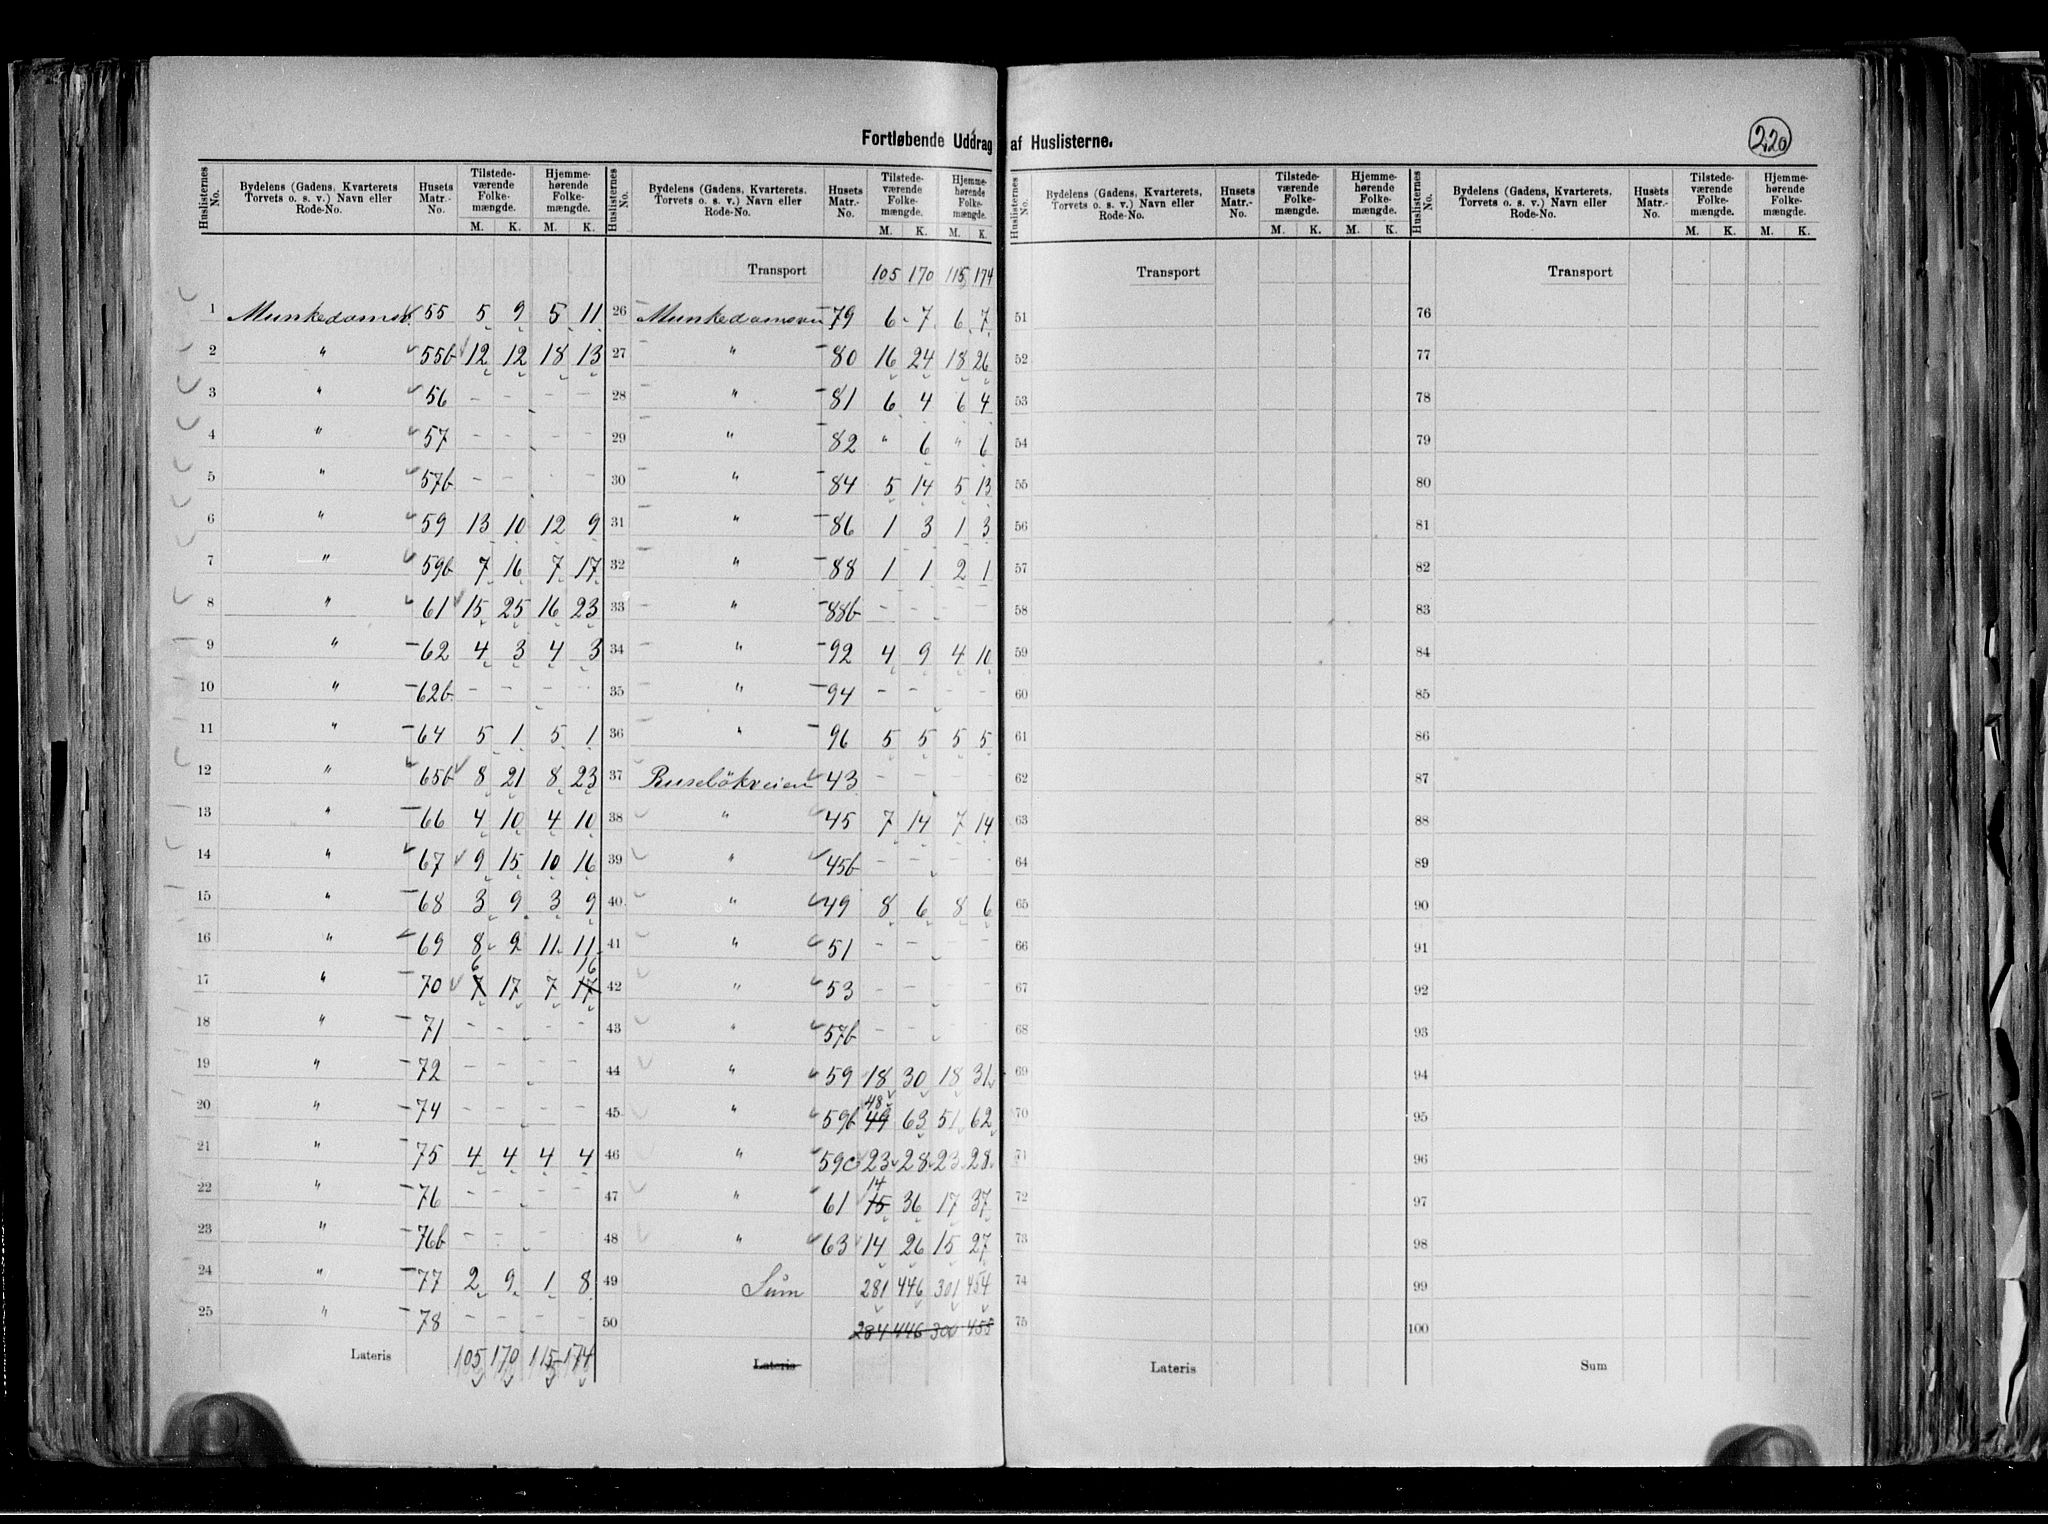 Fortløbende Uddrag af Huslisterne.
220
Huslisternes No. | Bydelens (Gadens, Kvarterets Torvets o. s. v.) Navn eller Rode-No. | Husets Matr.-No. | Tilstedeværende Folkemængde. M. K. | Hjemmehørende Folkemængde. M. K.
1 Munkedamsv. 55 5 9 5 11
2 " 55b 12 12 18 13
3 " 56 - - - -
4 " 57 - - - -
5 " 57b - - - -
6 " 59 13 10 12 9
7 " 59b 7 16 7 17
8 " 61 15 25 16 23
9 " 62 4 3 4 3
10 " 62b - - - -
11 " 64 5 1 5 1
12 " 65b 8 21 8 23
13 " 66 4 10 4 10
14 " 67 9 15 10 16
15 " 68 3 9 3 9
16 " 69 8 9 11 11
6 16
17 " 70 7 17 7 17
18 " 71 - - - -
19 " 72 - - - -
20 " 74 - - - -
21 " 75 4 4 4 4
22 " 76 - - - -
23 " 76b - - - -
24 " 77 2 9 1 8
25 " 78 - - - -
Lateris 105 170 115 174
Huslisternes No. | Bydelens (Gadens, Kvarterets, Torvets o. s. v.) Navn eller Rode-No. | Husets Matr.-No. | Tilstedeværende Folkemængde. M. K. | Hjemmehørende Folkemængde. M. K.
Transport 105 170 115 174
26 Munkedamsveien 79 6 7 6 7
27 " 80 16 24 18 26
28 " 81 6 4 6 4
29 " 82 " 6 " 6
30 " 84 5 14 5 13
31 " 86 1 3 1 3
32 " 88 1 1 2 1
33 " 88b - - - -
34 " 92 4 9 4 10
35 " 94 - - - -
36 " 96 5 5 5 5
37 Ruseløkveien 43 - - - -
38 " 45 7 14 7 14
39 " 45b - - - -
40 " 49 8 6 8 6
41 " 51 - - - -
42 " 53 - - - -
43 " 57b - - - -
44 " 59 18 30 18 31
48
45 " 59b 49 63 51 62
46 " 59c 23 28 23 28
14
47 " 61 15 36 17 37
48 " 63 14 26 15 27
49 Sum 281 446 301 454
50 284 446 300 455
Lateris
Huslisternes No. | Bydelens (Gadens, Kvarterets, Torvets o. s. v.) Navn eller Rode-No. | Husets Matr.-No. | Tilstedeværende Folkemængde. M. K. | Hjemmehørende Folkemængde. M. K.
Transport
51
52
53
54
55
56
57
58
59
60
61
62
63
64
65
66
67
68
69
70
71
72
73
74
75
Lateris
Huslisternes No. | Bydelens (Gadens, Kvarterets, Torvets o. s. v.) Navn eller Rode-No. | Husets Matr.-No. | Tilstedeværende Folkemængde. M. K. | Hjemmehørende Folkemængde. M. K.
Transport
76
77
78
79
80
81
82
83
84
85
86
87
88
89
90
91
92
93
94
95
96
97
98
99
100
Sum